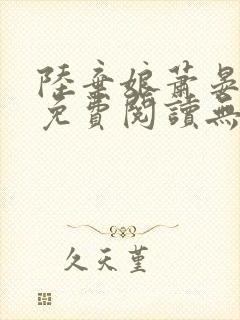 陸棄娘蕭晏
免費閱讀無
久天堇